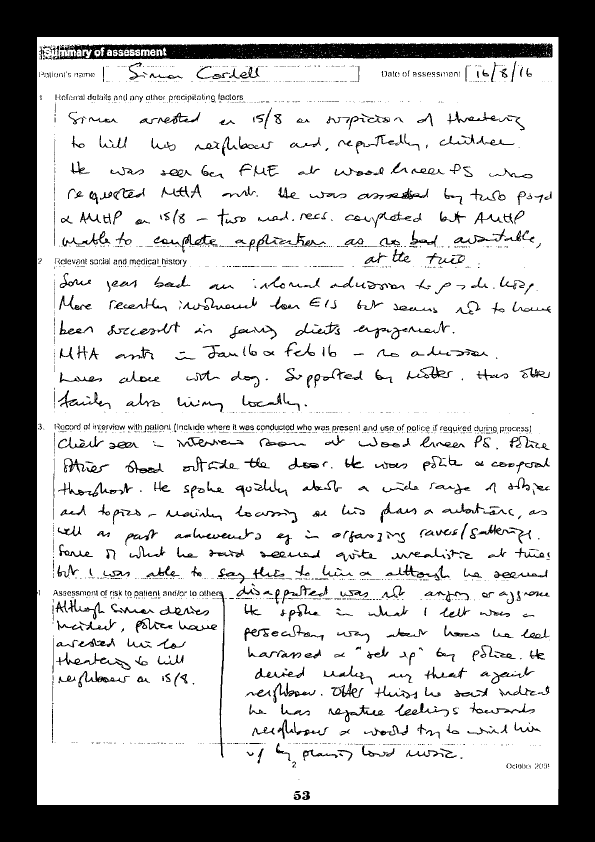 Summary of assessment
Patient's name Simon Cordell Date of assessment 16/8/16
1 Referral details and any other precipitating factors
Simon arrested on 15/8 on suspicion of threatening
to kill his neighbour and, reportedly, children.
He was seen by FME at Wood Green PS who
requested MHA ass. He was assessed by two psyd
& AMHP on 15/8 – two med. recs. completed but AMHP
unable to complete application as no bed available,
at the time.
2. Relevant social and medical history
Some years back an informal admission to psych. hosp.
More recently involvement from EIS but seems not to have
been successful in gaining clients engagement.
MHA in Jan 16 & Feb 16 – no admission.
Lives alone with dog. Supported by mother. Has other
family also living locally.
3. Record of interview with patient (Include where it was conducted who was present and use of police if required during process)
Client seen in interview room at Wood Green PS. Police
officer stood outside the door. He was polite & cooperat
throughout. He spoke quickly about a wide range of subjec
and topics – mainly focussing on his plans & ambitions, as
well as past achievements eg in organizing raves/gatherings.
Some of what he said seemed quite unrealistic at times
but I was able to say this to him & although he seemed
disappointed was not angry or aggressive
4 Assessment of risk to patient and/or to others
Although Simon denies
incident, police have
arrested him for
threatening to kill
neighbour on 15/8.
He spoke in what I felt was a
persecutory way about how he feel
harrassed & "set up" by police. He
denied making any threat against
neighbour. Other things he said indicat
he has negative feelings towards
neighbour & would try to wind him
up by playing loud music.
2
October 2008
53